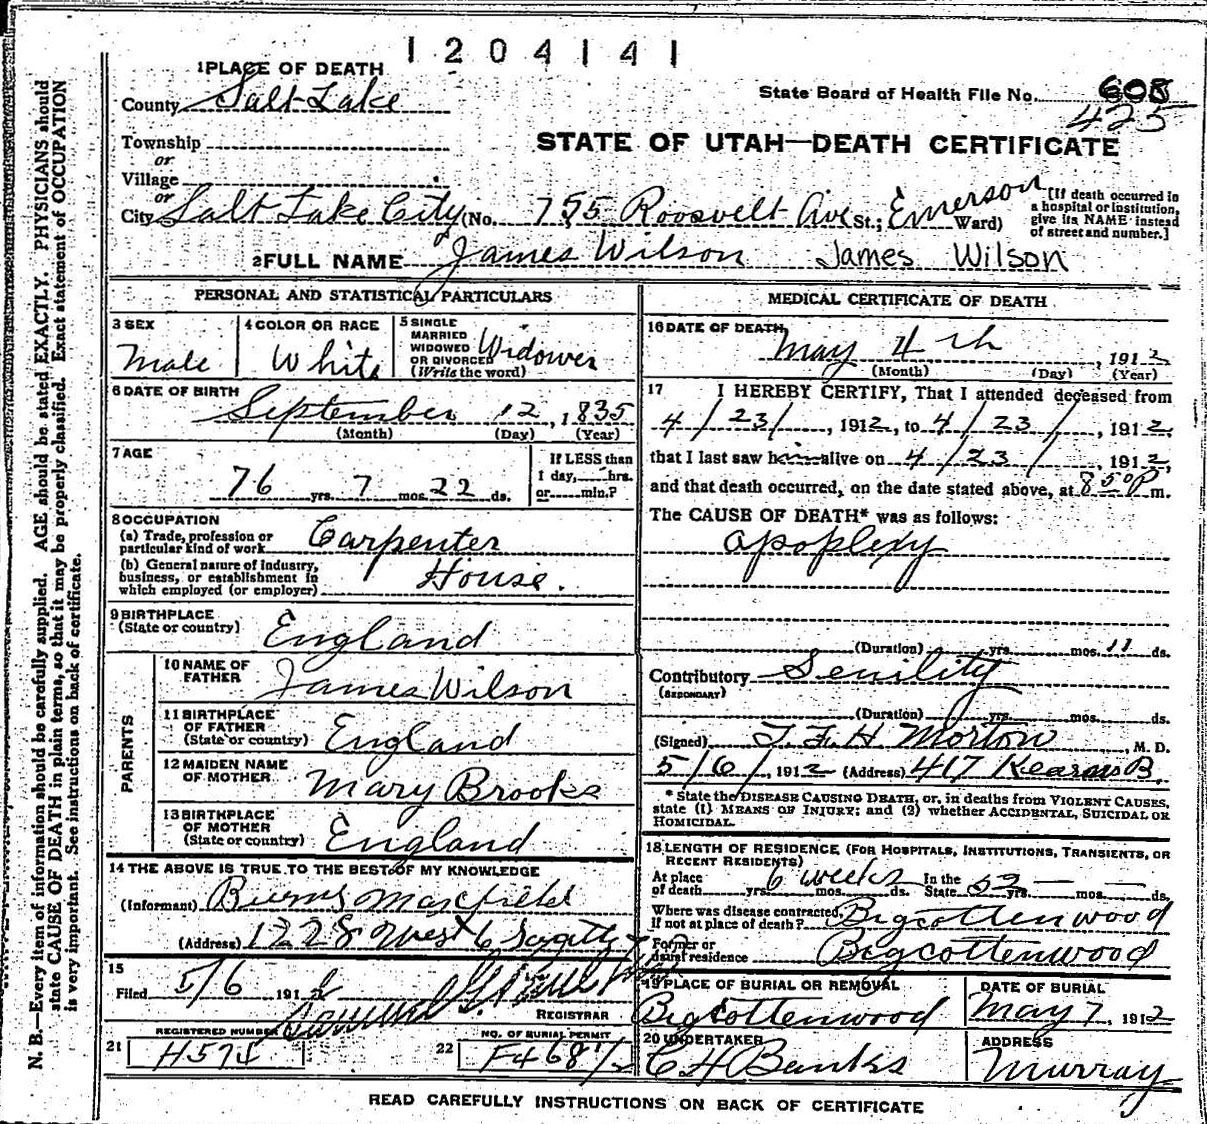 1204141
1 PLACE OF DEATH
County Salt Lake
State Board of Health File No. 608
425
Township
or
Village
or
STATE OF UTAH—DEATH CERTIFICATE
City Salt Lake City (No. 755 Roosvelt Ave St.; Emerson Ward)
[If death occurred in
a hospital or institution,
give its NAME instead
of street and number.]
2 FULL NAME James Wilson James Wilson
PERSONAL AND STATISTICAL PARTICULARS
3 SEX
Male
4 COLOR OR RACE
White
5 SINGLE
MARRIED
WIDOWED
OR DIVORCED
(Write the word)
Widower
6 DATE OF BIRTH
September 12, 1835
(Month) (Day) (Year)
7 AGE
76 yrs. 7 mos. 22 ds.
If LESS than
1 day, hrs.
or min.?
8 OCCUPATION
(a) Trade, profession or
particular kind of work Carpenter
(b) General nature of industry,
business, or establishment in
which employed (or employer) House.
9 BIRTHPLACE
(State or country) England
PARENTS
10 NAME OF
FATHER James Wilson
11 BIRTHPLACE
OF FATHER
(State or country) England
12 MAIDEN NAME
OF MOTHER Mary Brooks
13 BIRTHPLACE
OF MOTHER
(State or country) England
14 THE ABOVE IS TRUE TO THE BEST OF MY KNOWLEDGE
(Informant)
(Address) 1228 West 6
15
Filed 5/6 1912
REGISTRAR
REGISTERED NUMBER
21 H574
NO. OF BURIAL PERMIT
22 F468 1/2
MEDICAL CERTIFICATE OF DEATH
16 DATE OF DEATH
May 4th, 1912
(Month) (Day) (Year)
17 I HEREBY CERTIFY, That I attended deceased from
4/23/, 1912, to 4/23/, 1912,
that I last saw him alive on 4/23, 1912,
and that death occurred, on the date stated above, at 8 50 P m.
The CAUSE OF DEATH* was as follows:
apoplexy
(Duration) yrs. mos. 11 ds.
Contributory Senility
(SECONDARY)
(Duration) yrs. mos. ds.
(Signed) T. F. H. Morton, M. D.
5/6/, 1912 (Address) 417 Kearns B.
* State the DISEASE CAUSING DEATH, or, in deaths from VIOLENT CAUSES,
state (1) MEANS OF INJURY; and (2) whether ACCIDENTAL, SUICIDAL OR
HOMICIDAL.
18 LENGTH OF RESIDENCE (FOR HOSPITALS, INSTITUTIONS, TRANSIENTS, OR
RECENT RESIDENTS)
At place
of death yrs. 6 weeks mos. ds. In the
State 52 yrs. — mos. — ds.
Where was disease contracted,
if not at place of death? Bigcottenwood
Former or
usual residence Bigcottenwood
19 PLACE OF BURIAL OR REMOVAL
Bigcottenwood
DATE OF BURIAL
May 7, 1912
20 UNDERTAKER
C H Banks
ADDRESS
Murray
READ CAREFULLY INSTRUCTIONS ON BACK OF CERTIFICATE
N. B.—Every item of information should be carefully supplied. AGE should be stated EXACTLY. PHYSICIANS should
state CAUSE OF DEATH in plain terms, so that it may be properly classified. Exact statement of OCCUPATION
is very important. See instructions on back of certificate.